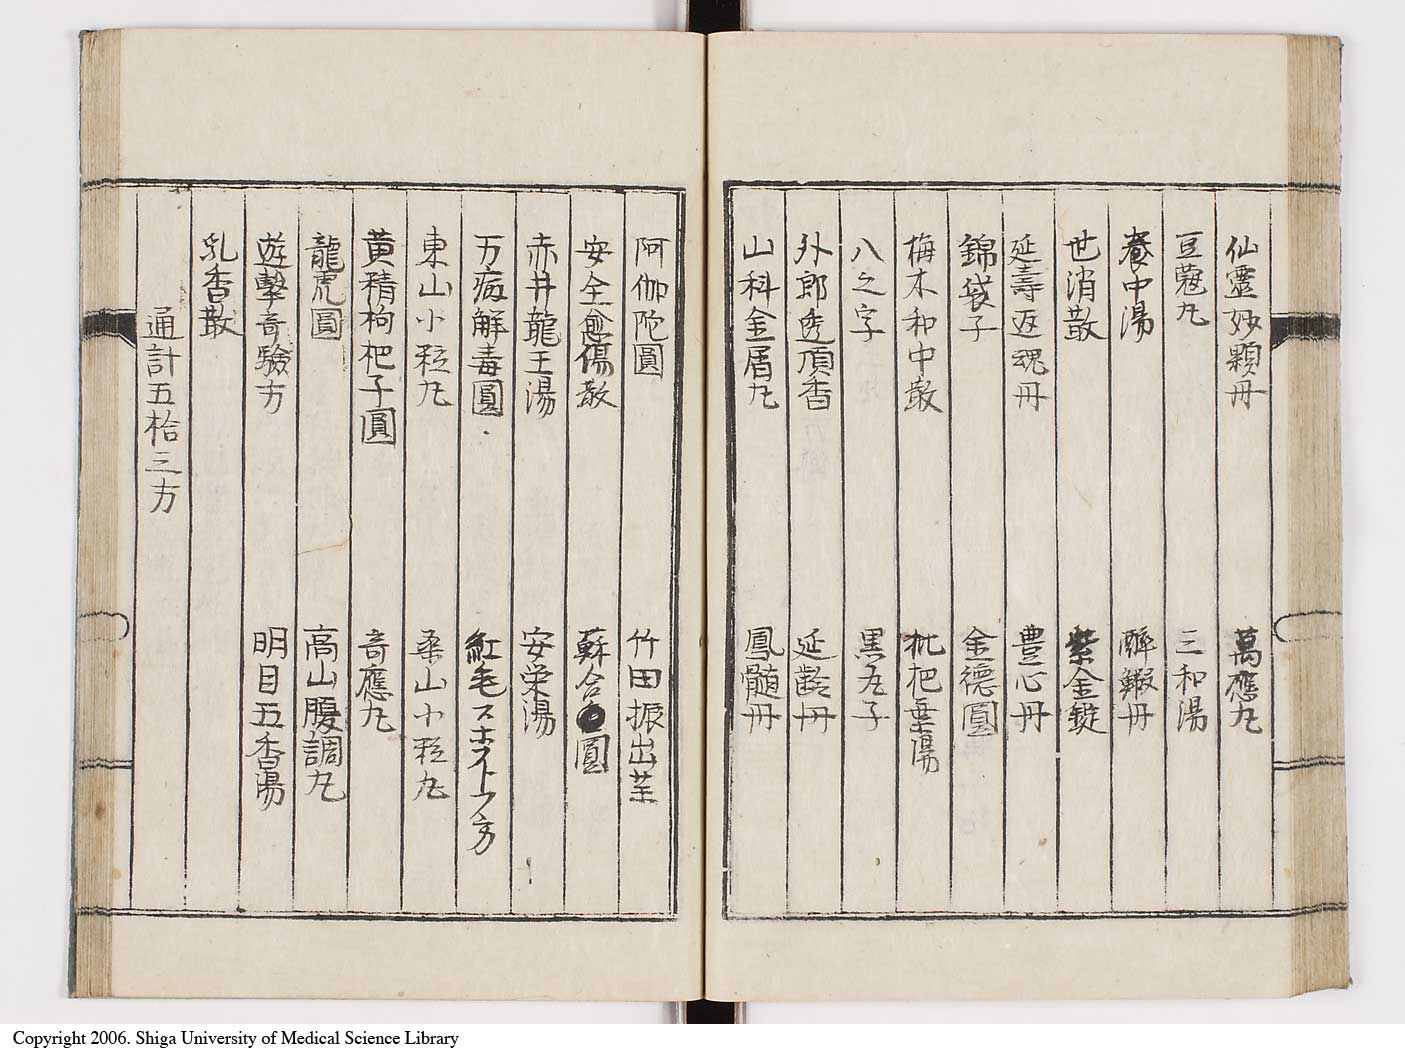 仙靈妙顆丹　萬應丸
豆蔻丸　三和湯
養中湯　醉鰕丹
世消散　紫金錠
延壽返魂丹　豊心丹
錦袋子　金德圓
梅木和中散　枇杷葉湯
八之字　黒丸子
外郎透頂香　延齡丹
山科金屑丸　鳳髄丹
阿伽陀圓　竹田振出茶
安全愈傷散　蘇合圓
赤井龍王湯　安栄湯
万病解毒圓　紅毛スホストフ方
東山小粒丸　桑山小粒丸
黄精枸杞子圓　奇應丸
龍虎圓　高山腹調丸
遊撃奇驗方　明目五香湯
乳香散
通計五拾三方
Copyright 2006. Shiga University of Medical Science Library